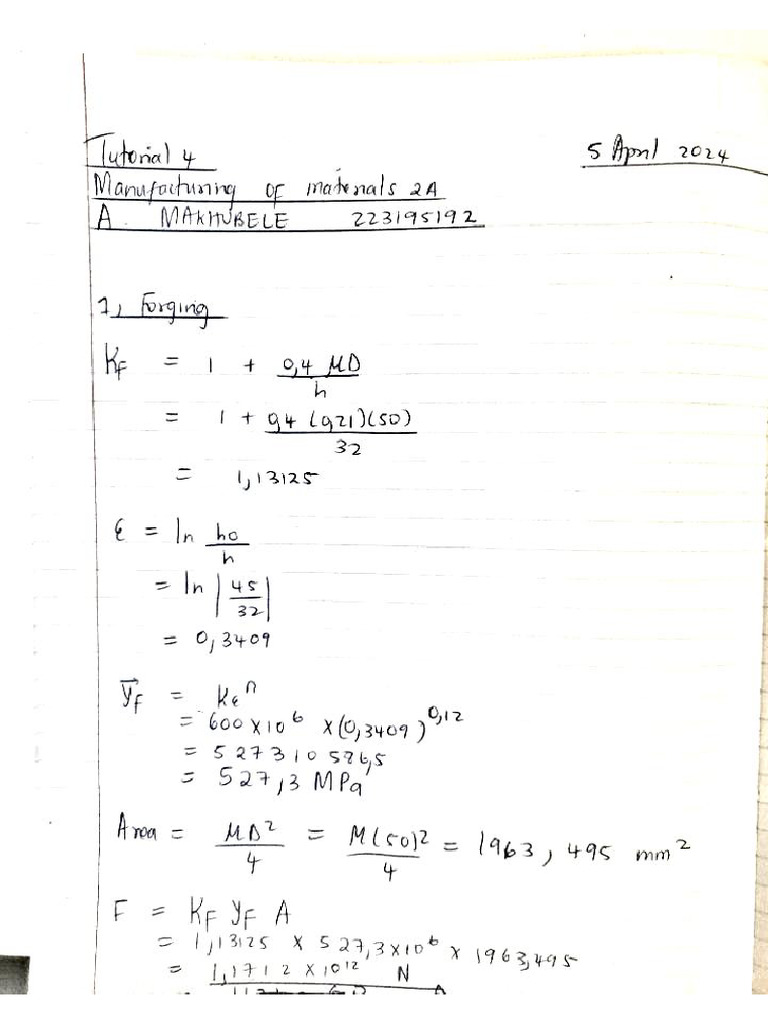 Tutorial 4 5 April 2024
Manufacturing of materials 2A
A. MAKHUBELE 223195192
1, Forging
KF = 1 + 0,4 MD / h
= 1 + 0,4 (0,21)(50) / 32
= 1,13125
ε = ln ho / h
= ln |45 / 32|
= 0,3409
YF = Kεⁿ
= 600 × 10⁶ × (0,3409)^0,12
= 527310586,5
= 527,3 MPa
Area = MD² / 4 = M(50)² / 4 = 1963,495 mm²
F = KF YF A
= 1,13125 × 527,3×10⁶ × 1963,495
= 1,1712 × 10¹² N